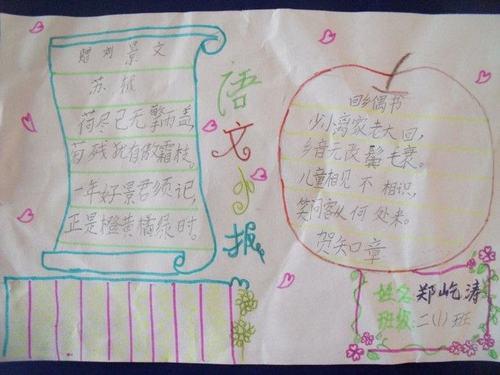 赠刘景文
苏轼
荷尽已无擎雨盖
菊残犹有傲霜枝。
一年好景君须记，
正是橙黄橘绿时。
语文小报
回乡偶书
少小离家老大回，
乡音无改鬓毛衰。
儿童相见不相识，
笑问客从何处来。
贺知章
姓名郑屹涛
班级:二(1)班